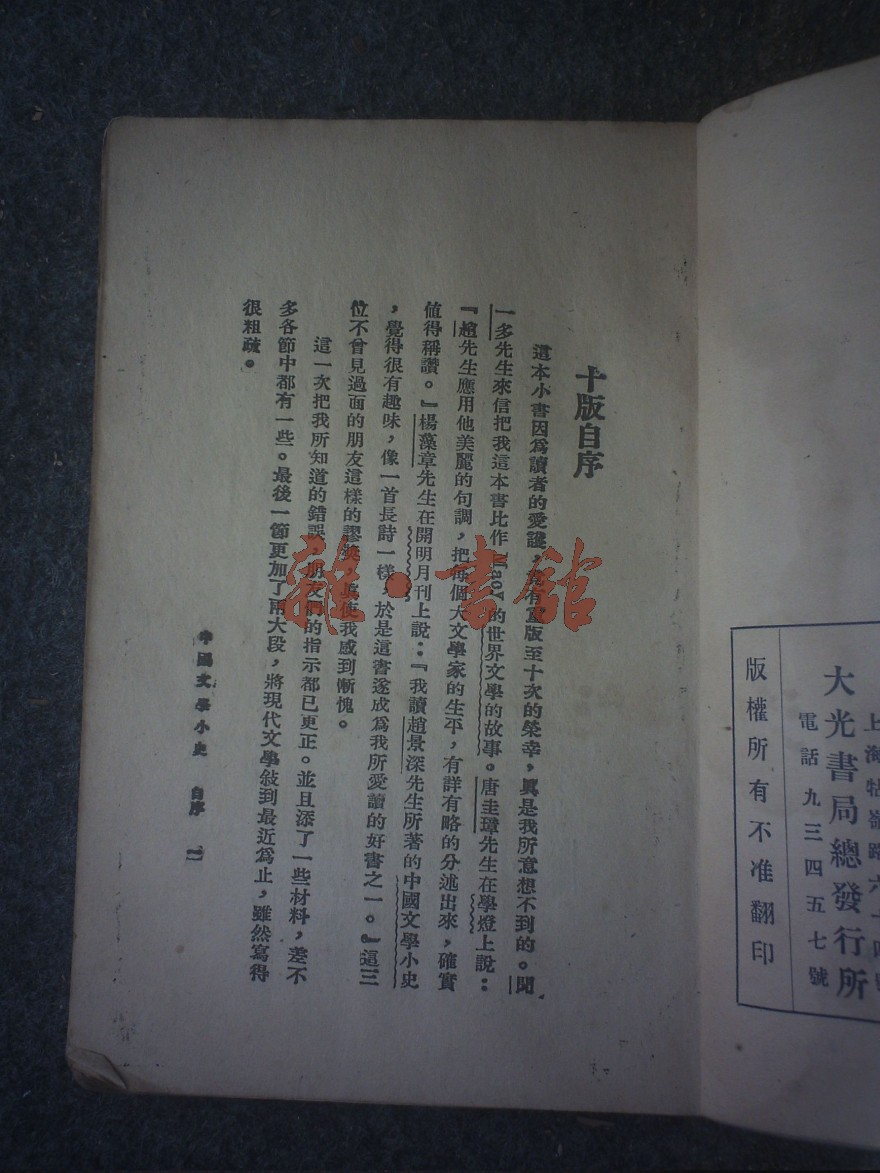 版權所有不准翻印
電話九三四五七號
大光書局總發行所
上海牯嶺路六十四號
十版自序
這本小書因爲讀者的愛護,竟有重版至十次的榮幸,眞是我所意想不到的。聞
一多先生來信把我這本書比作 Macy 的世界文學的故事。唐圭璋先生在學燈上說:
『趙先生應用他美麗的句調,把每個大文學家的生平,有詳有略的分述出來,確實
値得稱讚。』楊藻章先生在開明月刊上說:『我讀趙景深先生所著的中國文學小史
,覺得很有趣味,像一首長詩一樣,於是這書遂成爲我所愛讀的好書之一。』這三
位不曾見過面的朋友這樣的謬獎,眞使我感到慚愧。
這一次把我所知道的錯誤,朋友們的指示都已更正。並且添了一些材料,差不
多各節中都有一些。最後一節更加了兩大段,將現代文學敍到最近爲止,雖然寫得
很粗疏。
中國文學小史 自序 一
雜·書館